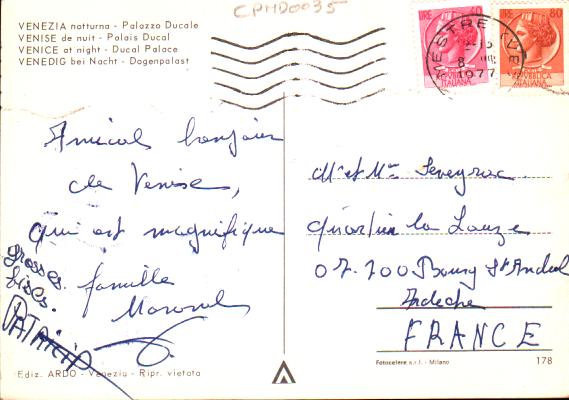 CPMD0035
VENEZIA notturna - Palazzo Ducale
VENISE de nuit - Palais Ducal
VENICE at night - Ducal Palace
VENEDIG bei Nacht - Dogenpalast
LIRE 40
POSTE REPUBBLICA ITALIANA
LIRE 80
REPUBBLICA ITALIANA
MESTRE (VE
8 1977
Amical bonjour
de Venise,
qui est magnifique
famille
grosses
bises.
PATRICIA
Mr et Mme Seveyrac
quartier la Lauze
07.700 Bourg St Andéol
Ardèche
FRANCE
Ediz. ARDO - Venezia - Ripr. vietata
Fotocelere s.r.l. - Milano
178